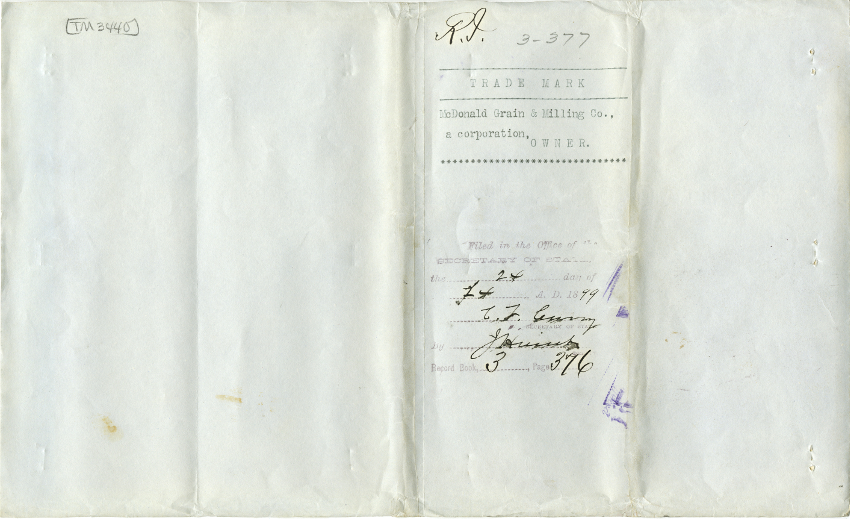 [TM 3440]
R.I. 3-377
TRADE MARK
McDonald Grain & Milling Co.,
a corporation,
OWNER.
*******************************
Filed in the Office of the
SECRETARY OF STATE
the 24 day of
A. D. 1899
C. F. Curry
SECRETARY OF STATE
by
Record Book, 3, Page 376